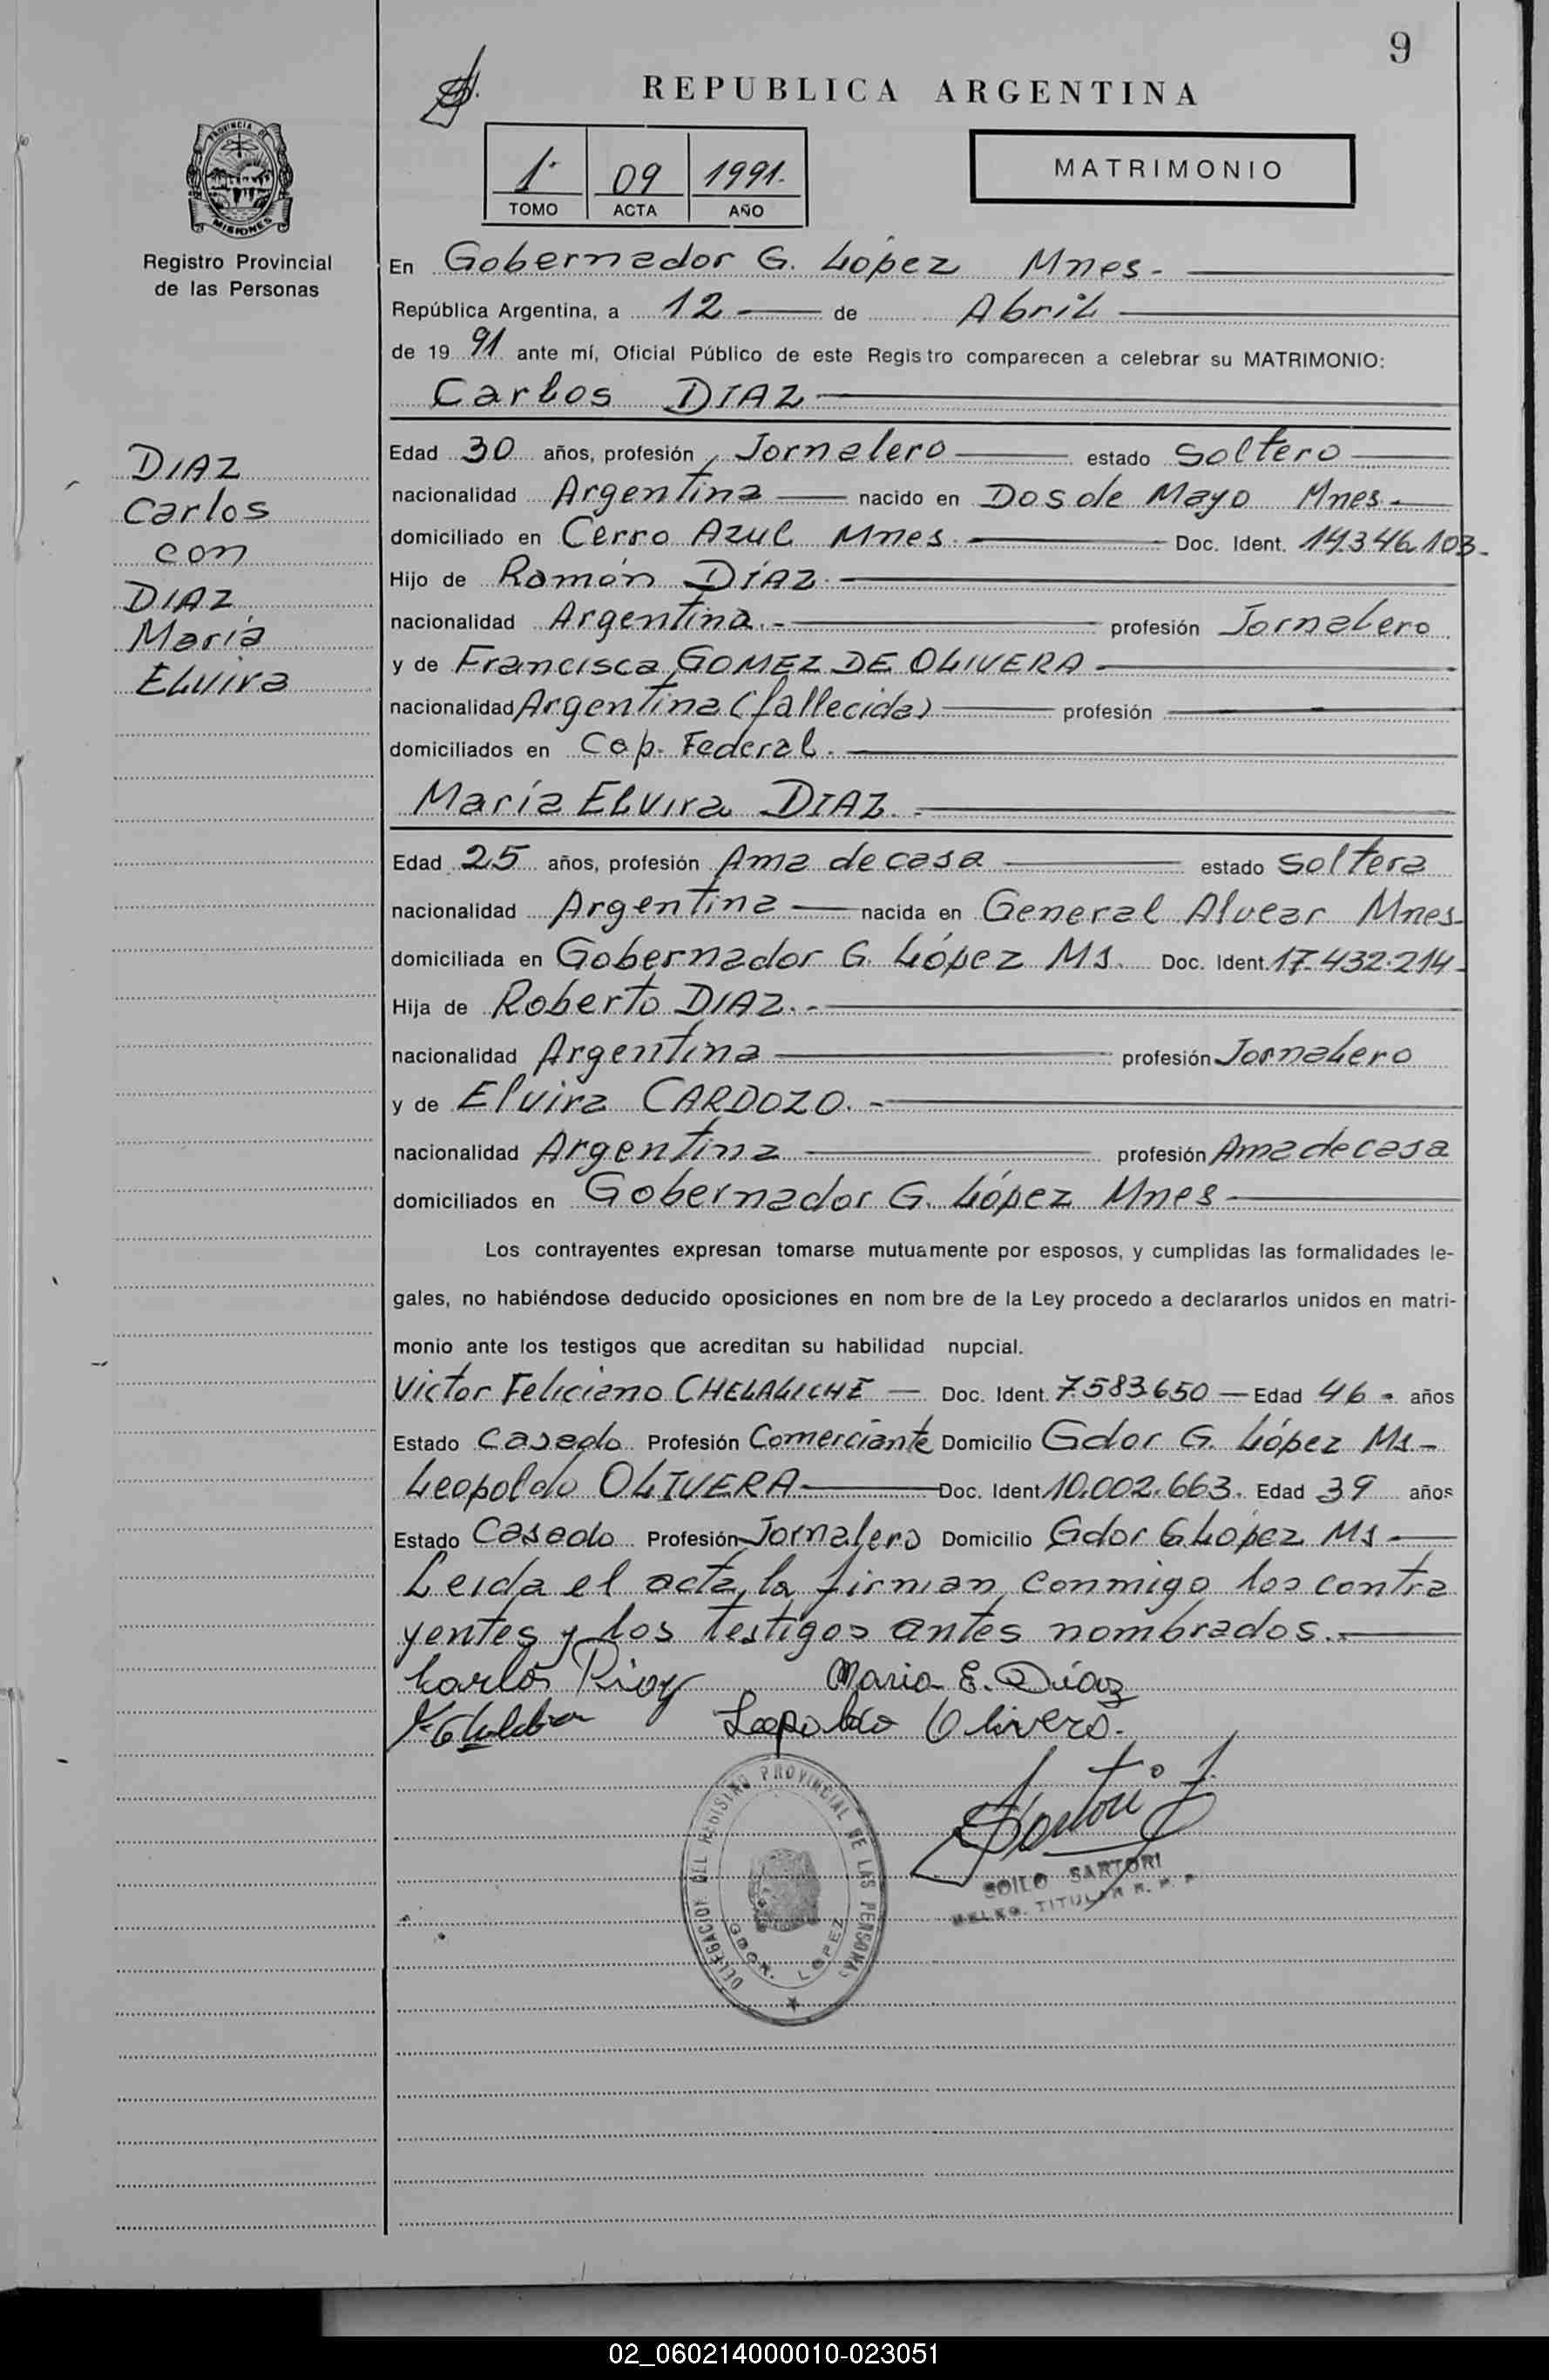 9
REPUBLICA ARGENTINA
PROVINCIA DE
MISIONES
Registro Provincial
de las Personas
1· 09 1991.
TOMO ACTA AÑO
MATRIMONIO
En Gobernador G. López Mnes-
República Argentina, a 12 de Abril
de 19 91 ante mí, Oficial Público de este Registro comparecen a celebrar su MATRIMONIO:
Carlos DIAZ
DIAZ
Carlos
con
DIAZ
María
Elvira
Edad 30 años, profesión Jornalero estado Soltero
nacionalidad Argentina nacido en Dos de Mayo Mnes-
domiciliado en Cerro Azul Mnes. Doc. Ident. 14.346.103-
Hijo de Ramón DÍAZ.
nacionalidad Argentina.- profesión Jornalero
y de Francisca GOMEZ DE OLIVERA
nacionalidad Argentina (fallecida) profesión
domiciliados en Cap. Federal.
María Elvira DIAZ.-
Edad 25 años, profesión Ama de casa estado Soltera
nacionalidad Argentina nacida en General Alvear Mnes-
domiciliada en Gobernador G. López Ms. Doc. Ident. 17.432.214-
Hija de Roberto DIAZ.-
nacionalidad Argentina profesión Jornalero
y de Elvira CARDOZO.-
nacionalidad Argentina profesión Ama de casa
domiciliados en Gobernador G. López Mnes
Los contrayentes expresan tomarse mutuamente por esposos, y cumplidas las formalidades le-
gales, no habiéndose deducido oposiciones en nom bre de la Ley procedo a declararlos unidos en matri-
monio ante los testigos que acreditan su habilidad nupcial.
Victor Feliciano CHELALICHE — Doc. Ident. 7.583.650 — Edad 46 - años
Estado Casado Profesión Comerciante Domicilio Gdor G. López Ms-
Leopoldo OLIVERA Doc. Ident 10.002.663. Edad 39 años
Estado Casado Profesión Jornalero Domicilio Gdor G López Ms
Leida el acta, la firman conmigo los contra
yentes y los testigos antes nombrados.-
Carlos
Maria E. Díaz
Leopoldo Olivera.
Sartori
DELEGACION DEL REGISTRO PROVINCIAL DE LAS PERSONAS
GDOR. LOPEZ
SOILO SARTORI
DELEG. TITULAR R. P. P
02_060214000010-023051